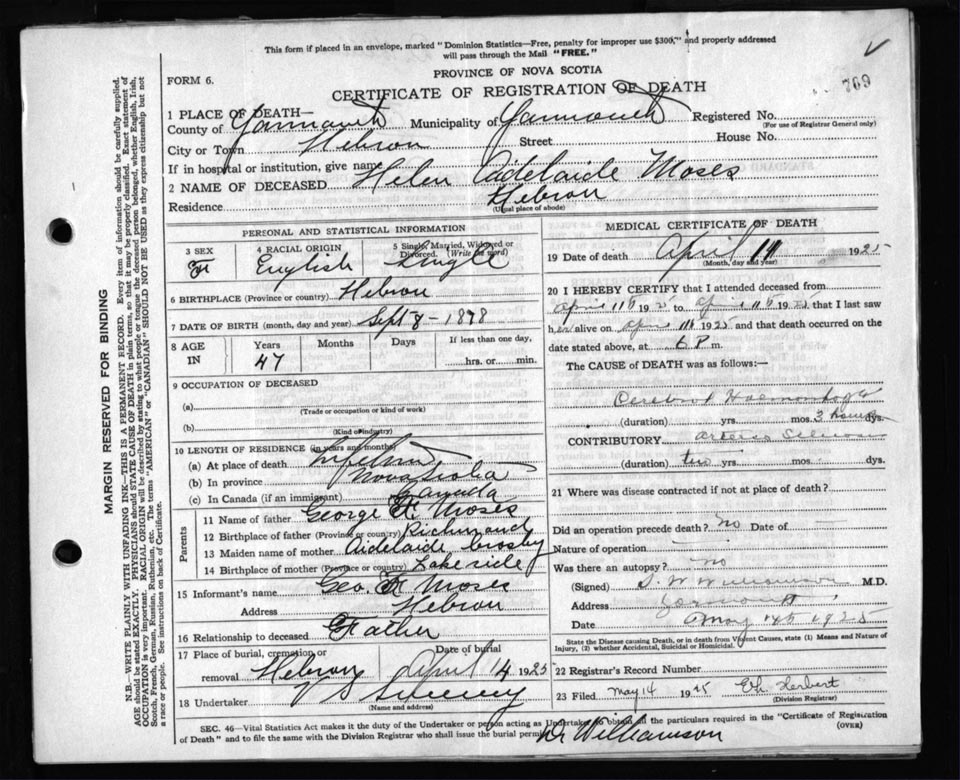 This form if placed in an envelope, marked "Dominion Statistics—Free, penalty for improper use $300," and properly addressed
will pass through the Mail "FREE."
FORM 6.
PROVINCE OF NOVA SCOTIA
CERTIFICATE OF REGISTRATION OF DEATH
769
1 PLACE OF DEATH—
County of Yarmouth Municipality of Yarmouth Registered No.
(For use of Registrar General only)
City or Town Hebron Street House No.
If in hospital or institution, give name
2 NAME OF DECEASED Helen Aidelaide Moses
Residence Hebron
(Usual place of abode)
PERSONAL AND STATISTICAL INFORMATION
3 SEX 4 RACIAL ORIGIN 5 Single, Married, Widowed or Divorced. (Write the word)
F English Single
6 BIRTHPLACE (Province or country) Hebron
7 DATE OF BIRTH (month, day and year) Sept 8 - 1878
8 AGE IN Years Months Days If less than one day,
47 hrs. or min.
9 OCCUPATION OF DECEASED
(a)
(Trade or occupation or kind of work)
(b)
(Kind of industry)
10 LENGTH OF RESIDENCE (in years and months)
(a) At place of death Life time
(b) In province Nova Scotia
(c) In Canada (if an immigrant) Canada
Parents
11 Name of father George H Moses
12 Birthplace of father (Province or country) Richmond
13 Maiden name of mother Aidelaide Crosby
14 Birthplace of mother (Province or country) Lakeside
15 Informant's name Geo. H Moses
Address Hebron
16 Relationship to deceased Father
17 Place of burial, cremation or removal Date of burial
Hebron April 14 1925
18 Undertaker V S Sweeny
(Name and address)
MEDICAL CERTIFICATE OF DEATH
19 Date of death April 11 1925
(Month, day and year)
20 I HEREBY CERTIFY that I attended deceased from
April 11th 1925 to April 11th 1925 that I last saw
her alive on April 11th 1925 and that death occurred on the
date stated above, at 6 P m.
The CAUSE of DEATH was as follows:
Cerebral Haemorrhage
(duration) yrs. mos. 3 hours dys.
CONTRIBUTORY Arterio Sclerosis
(duration) two yrs. mos. dys.
21 Where was disease contracted if not at place of death?
Did an operation precede death? no Date of
Nature of operation
Was there an autopsy? no
(Signed) S. W Williamson M.D.
Address Yarmouth
Date May 14th 1925
State the Disease causing Death, or in death from Violent Causes, state (1) Means and Nature of
Injury, (2) whether Accidental, Suicidal or Homicidal.
22 Registrar's Record Number
23 Filed May 14 1925 Herbert
(Division Registrar)
SEC. 46—Vital Statistics Act makes it the duty of the Undertaker or person acting as Undertaker to obtain all the particulars required in the "Certificate of Registration
of Death" and to file the same with the Division Registrar who shall issue the burial permit.
(OVER)
Dr Williamson
MARGIN RESERVED FOR BINDING
N.B.—WRITE PLAINLY WITH UNFADING INK—THIS IS A PERMANENT RECORD. Every item of information should be carefully supplied.
AGE should be stated EXACTLY. PHYSICIANS should STATE CAUSE OF DEATH in plain terms, so that it may be properly classified. Exact statement of
OCCUPATION is very important. RACIAL ORIGIN will be described by stating to what people or tongue the deceased person belonged, whether English, Irish,
Scotch, French, German, Russian, Ruthenian, etc. The terms "AMERICAN" or "CANADIAN" SHOULD NOT BE USED as they express citizenship but not
a race or people. See instructions on back of Certificate.